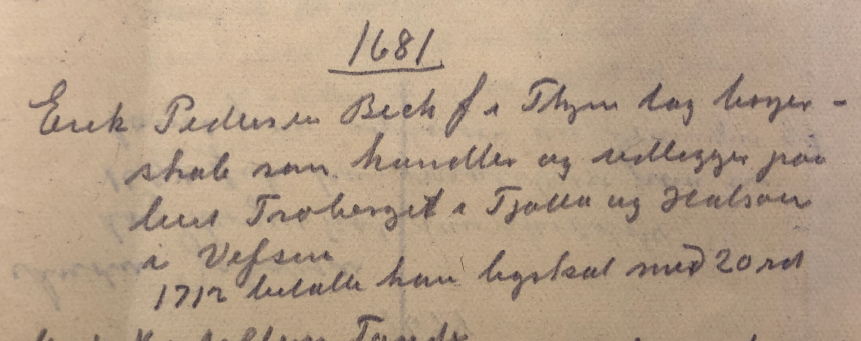 1681
Erik Pedersen Bech f i Thjem tog borger-
skab som handler og udlegger paa
Troberget i Tjotta og Halsøen
i Vefsen
1712 betalte han byskat med 20 rd